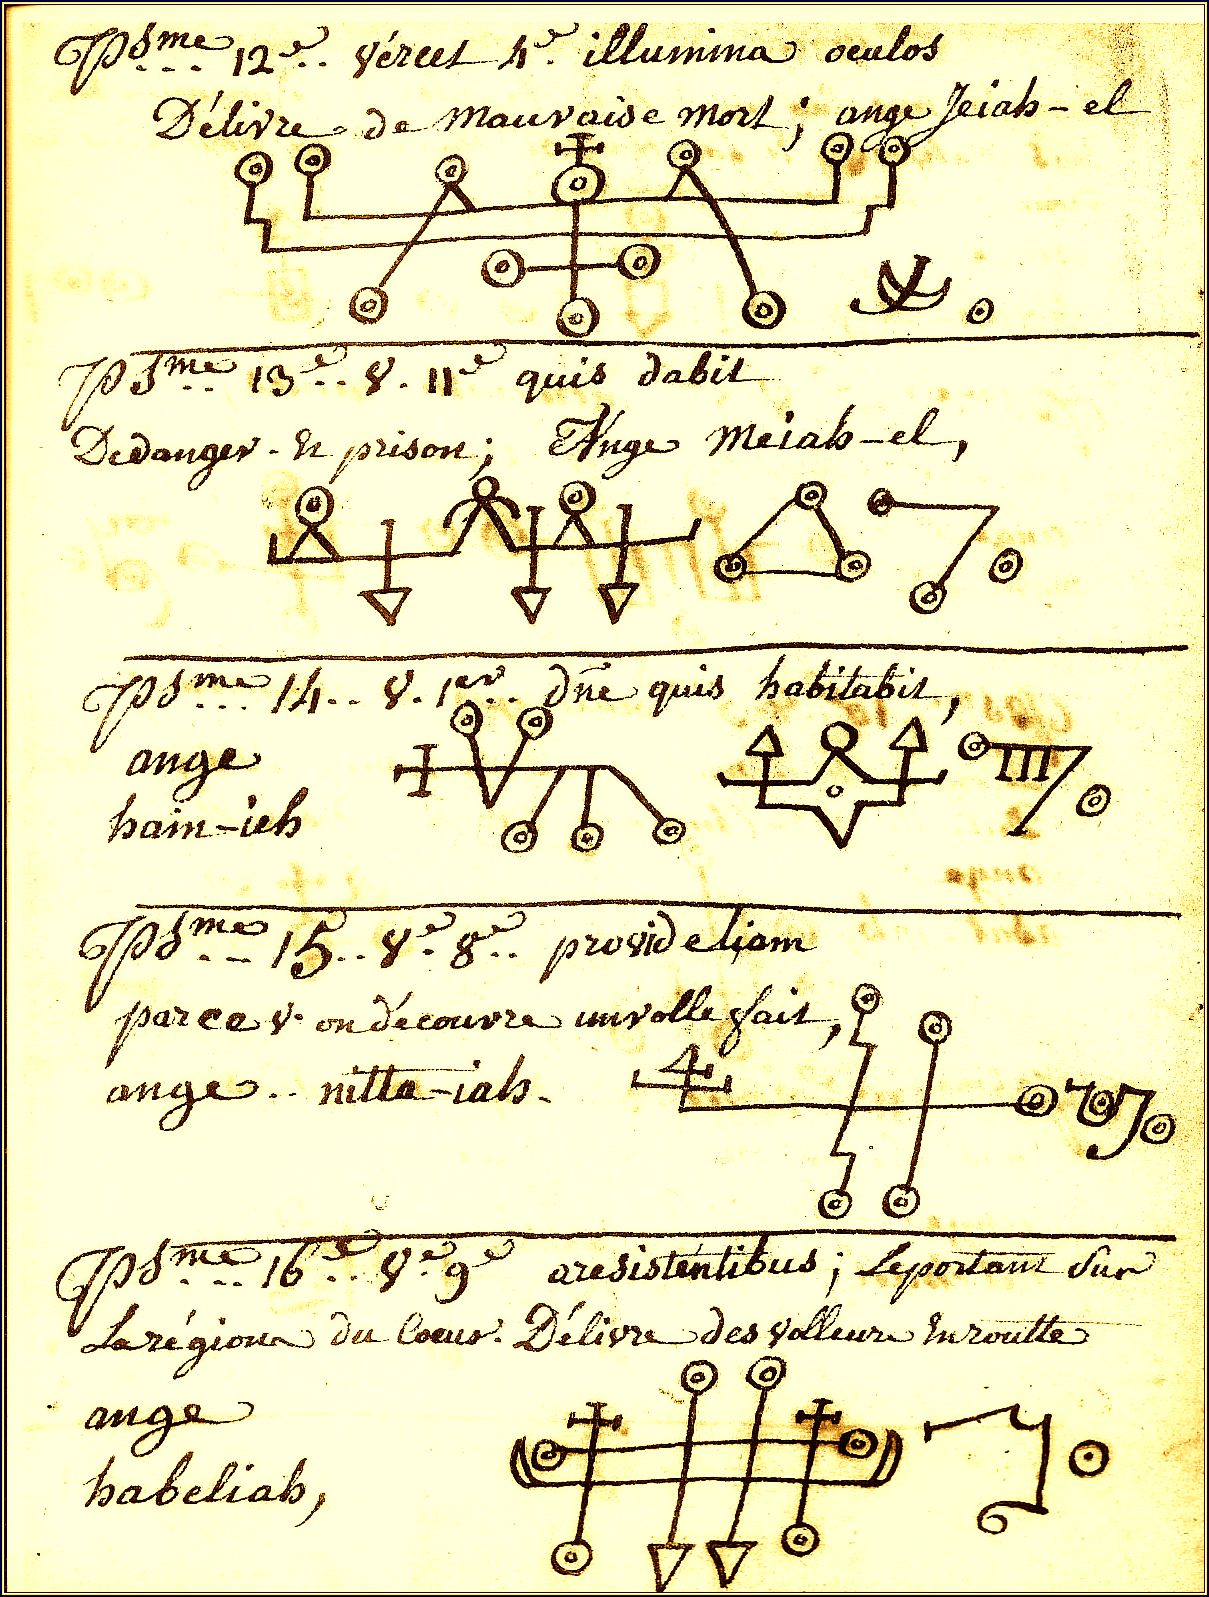 Psme 12e.. vércet 4e. illumina oculos
Délivre de mauvaise mort; ange Jeiah-el
Psme 13e.. v. 11e quis dabit
De danger. En prison; Ange meiah-el,
Psme 14.. v. 1er.. dñe quis habitabit,
ange
haim-ieh
Psme 15.. ve. 8e.. provideliam
parce v. on découvre un volle fait,
ange.. nitta-iah.
Psme 16e.. ve. 9e aresisténtibus; Le portant Sur
La région du Coeur. Délivre des volleurs En routte
ange
habeliah,